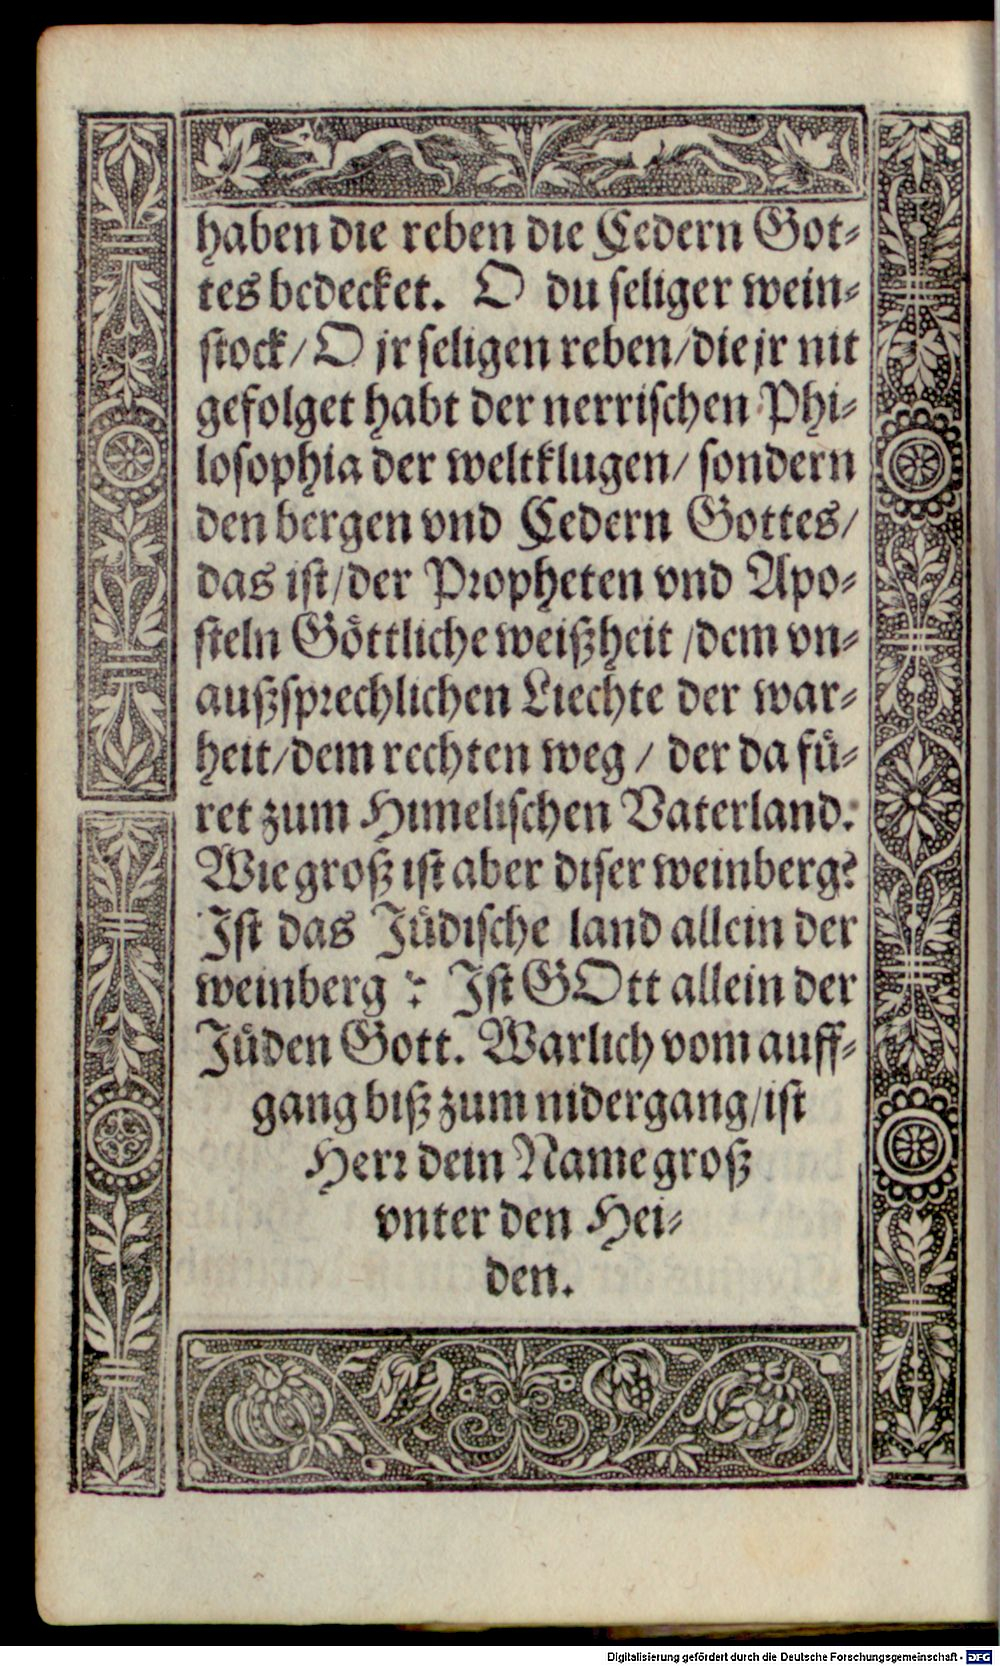 haben die reben die Cedern Got⸗
tes bedecket. O du seliger wein⸗
stock/ O jr seligen reben/die jr nit
gefolget habt der nerrischen Phi⸗
losophia der weltklugen/ sondern
den bergen vnd Cedern Gottes/
das ist/der Propheten vnd Apo⸗
steln Göttliche weißheit /dem vn⸗
außsprechlichen Liechte der war⸗
heit/dem rechten weg / der da fü⸗
ret zum Himelischen Vaterland.
Wie groß ist aber diser weinberg?
Ist das Jüdische land allein der
weinberg ? Ist GOtt allein der
Jüden Gott. Warlich vom auff⸗
gang biß zum nidergang/ist
Herr dein Name groß
vnter den Hei⸗
den.
Digitalisierung gefördert durch die Deutsche Forschungsgemeinschaft - DFG